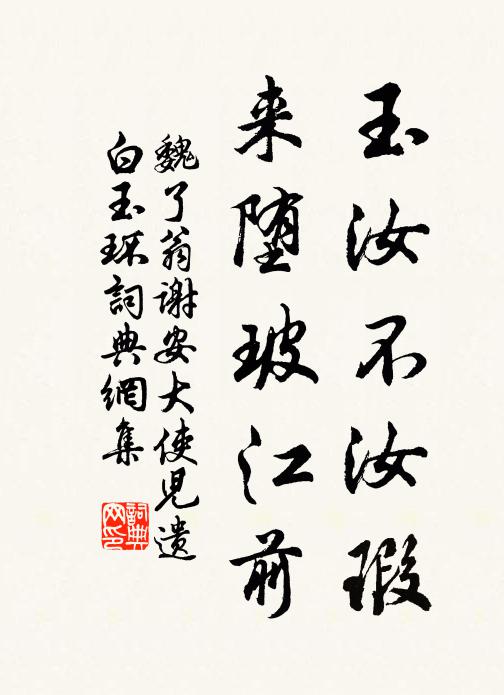 玉汝不汝瑕
来堕玻江前
魏了翁谢安大使儿遗
白玉环詞典網集
詞典
网印